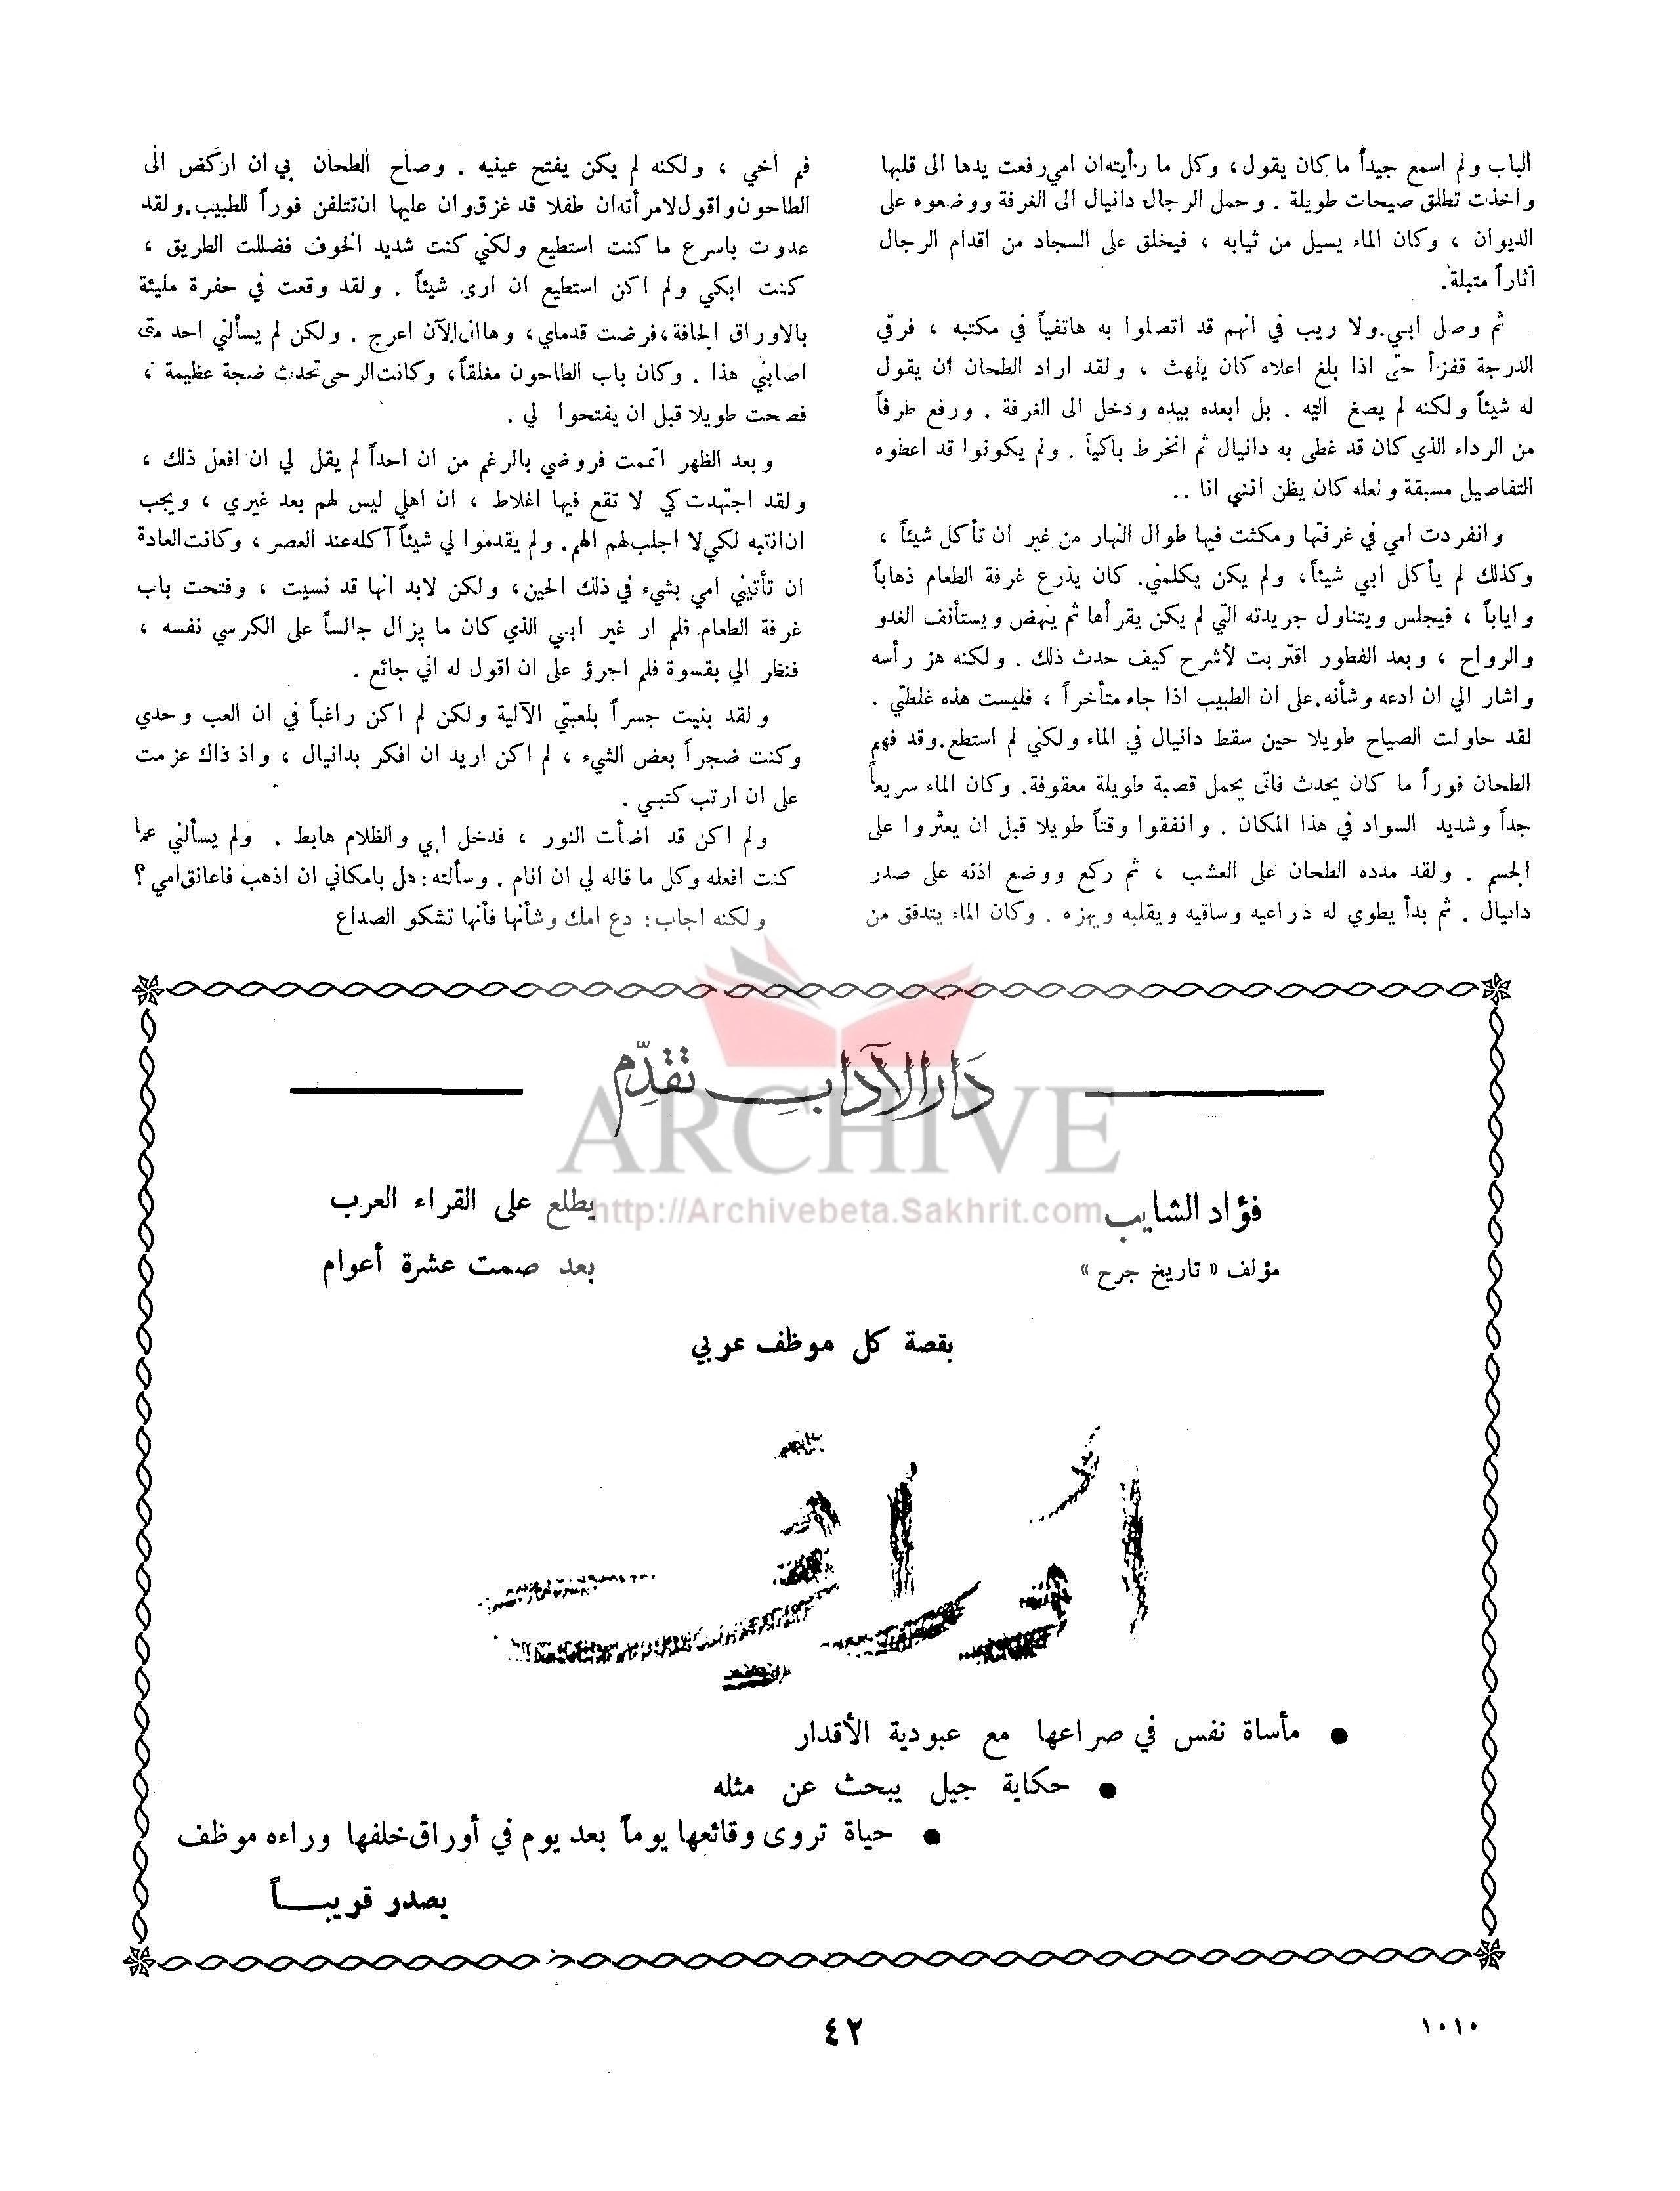 الباب ولم اسمع جيداً ما كان يقول، وكل ما رأيته ان امي رفعت يدها الى قلبها
واخذت تطلق صيحات طويلة . وحمل الرجال دانيال الى الغرفة ووضعوه على
الديوان ، وكان الماء يسيل من ثيابه ، فيخلق على السجاد من اقدام الرجال
آثاراً متبلة.
ثم وصل ابي.ولا ريب في انهم قد اتصلوا به هاتفياً في مكتبه ، فرقي
الدرجة قفزاً حتى اذا بلغ اعلاه كان يلهث ، ولقد اراد الطحان أن يقول
له شيئاً ولكنه لم يصغ اليه . بل ابعده بيده ودخل الى الغرفة . ورفع طرفاً
من الرداء الذي كان قد غطى به دانيال ثم انخرط باكياً . ولم يكونوا قد اعطوه
التفاصيل مسبقة ولعله كان يظن انني انا ..
وانفردت امي في غرفتها ومكثت فيها طوال النهار من غير ان تأكل شيئاً ،
وكذلك لم يأكل ابي شيئاً، ولم يكن يكلمني. كان يذرع غرفة الطعام ذهاباً
واياباً ، فيجلس ويتناول جريدته التي لم يكن يقرأها ثم ينهض ويستأنف الغدو
والرواح ، وبعد الفطور اقتربت لأشرح كيف حدث ذلك . ولكنه هز رأسه
واشار الي ان ادعه وشأنه.على ان الطبيب اذا جاء متأخراً ، فليست هذه غلطتي .
لقد حاولت الصياح طويلا حين سقط دانيال في الماء ولكني لم استطع.وقد فهم
الطحان فوراً ما كان يحدث فاتى يحمل قصبة طويلة معقوفة. وكان الماء سريعاً
جداً وشديد السواد في هذا المكان . وانفقوا وقتاً طويلا قبل ان يعثروا على
الجسم . ولقد مدده الطحان على العشب ، ثم ركع ووضع اذنه على صدر
دانيال . ثم بدأ يطوي له ذراعيه وساقيه ويقلبه ويهزه . وكان الماء يتدفق من
فم اخي ، ولكنه لم يكن يفتح عينيه . وصاح الطحان بي ان اركض الى
الطاحون واقول لامرأته ان طفلا قد غرق وان عليها ان تتلفن فوراً للطبيب.ولقد
عدوت باسرع ما كنت استطيع ولكني كنت شديد الخوف فضللت الطريق ،
كنت ابكي ولم اكن استطيع ان ارى شيئاً . ولقد وقعت في حفرة مليئة
بالاوراق الجافة،فرضت قدماي، وهااني الآن اعرج . ولكن لم يسألني احد متى
اصابني هذا . وكان باب الطاحون مغلقاً، وكانت الرحى تحدث ضجة عظيمة ،
فصحت طويلا قبل ان يفتحوا لي .
وبعد الظهر اتممت فروضي بالرغم من ان احداً لم يقل لي ان افعل ذلك ،
ولقد اجتهدت كي لا تقع فيها اغلاط ، ان اهلي ليس لهم بعد غيري ، ويجب
ان انتبه لكي لا اجلب لهم الهم. ولم يقدموا لي شيئاً آكله عند العصر ، وكانت العادة
ان تأتيني امي بشيء في ذلك الحين، ولكن لابد انها قد نسيت ، وفتحت باب
غرفة الطعام فلم ار غير ابي الذي كان ما يزال جالساً على الكرسي نفسه ،
فنظر الي بقسوة فلم اجرؤ على ان اقول له اني جائع .
ولقد بنيت جسراً بلعبتي الآلية ولكن لم اكن راغباً في ان العب وحدي
وكنت ضجراً بعض الشيء ، لم اكن اريد ان افكر بدانيال ، واذ ذاك عزمت
على ان ارتب كتبي .
ولم اكن قد اضأت النور ، فدخل ابي والظلام هابط . ولم يسألني عما
كنت افعله وكل ما قاله لي ان انام . وسألته: هل بامكاني ان اذهب فاعانق امي ؟
ولكنه اجاب: دع امك وشأنها فأنها تشكو الصداع
دار الآداب تقدّم
ARCHIVE
http://Archivebeta.Sakhrit.com
فؤاد الشايب
مؤلف « تاريخ جرح »
يطلع على القراء العرب
بعد صمت عشرة أعوام
بقصة كل موظف عربي
اوراق
● مأساة نفس في صراعها مع عبودية الأقدار
● حكاية جيل يبحث عن مثله
● حياة تروى وقائعها يوماً بعد يوم في أوراق خلفها وراءه موظف
يصدر قريبـــاً
٤٢
١٠١٠